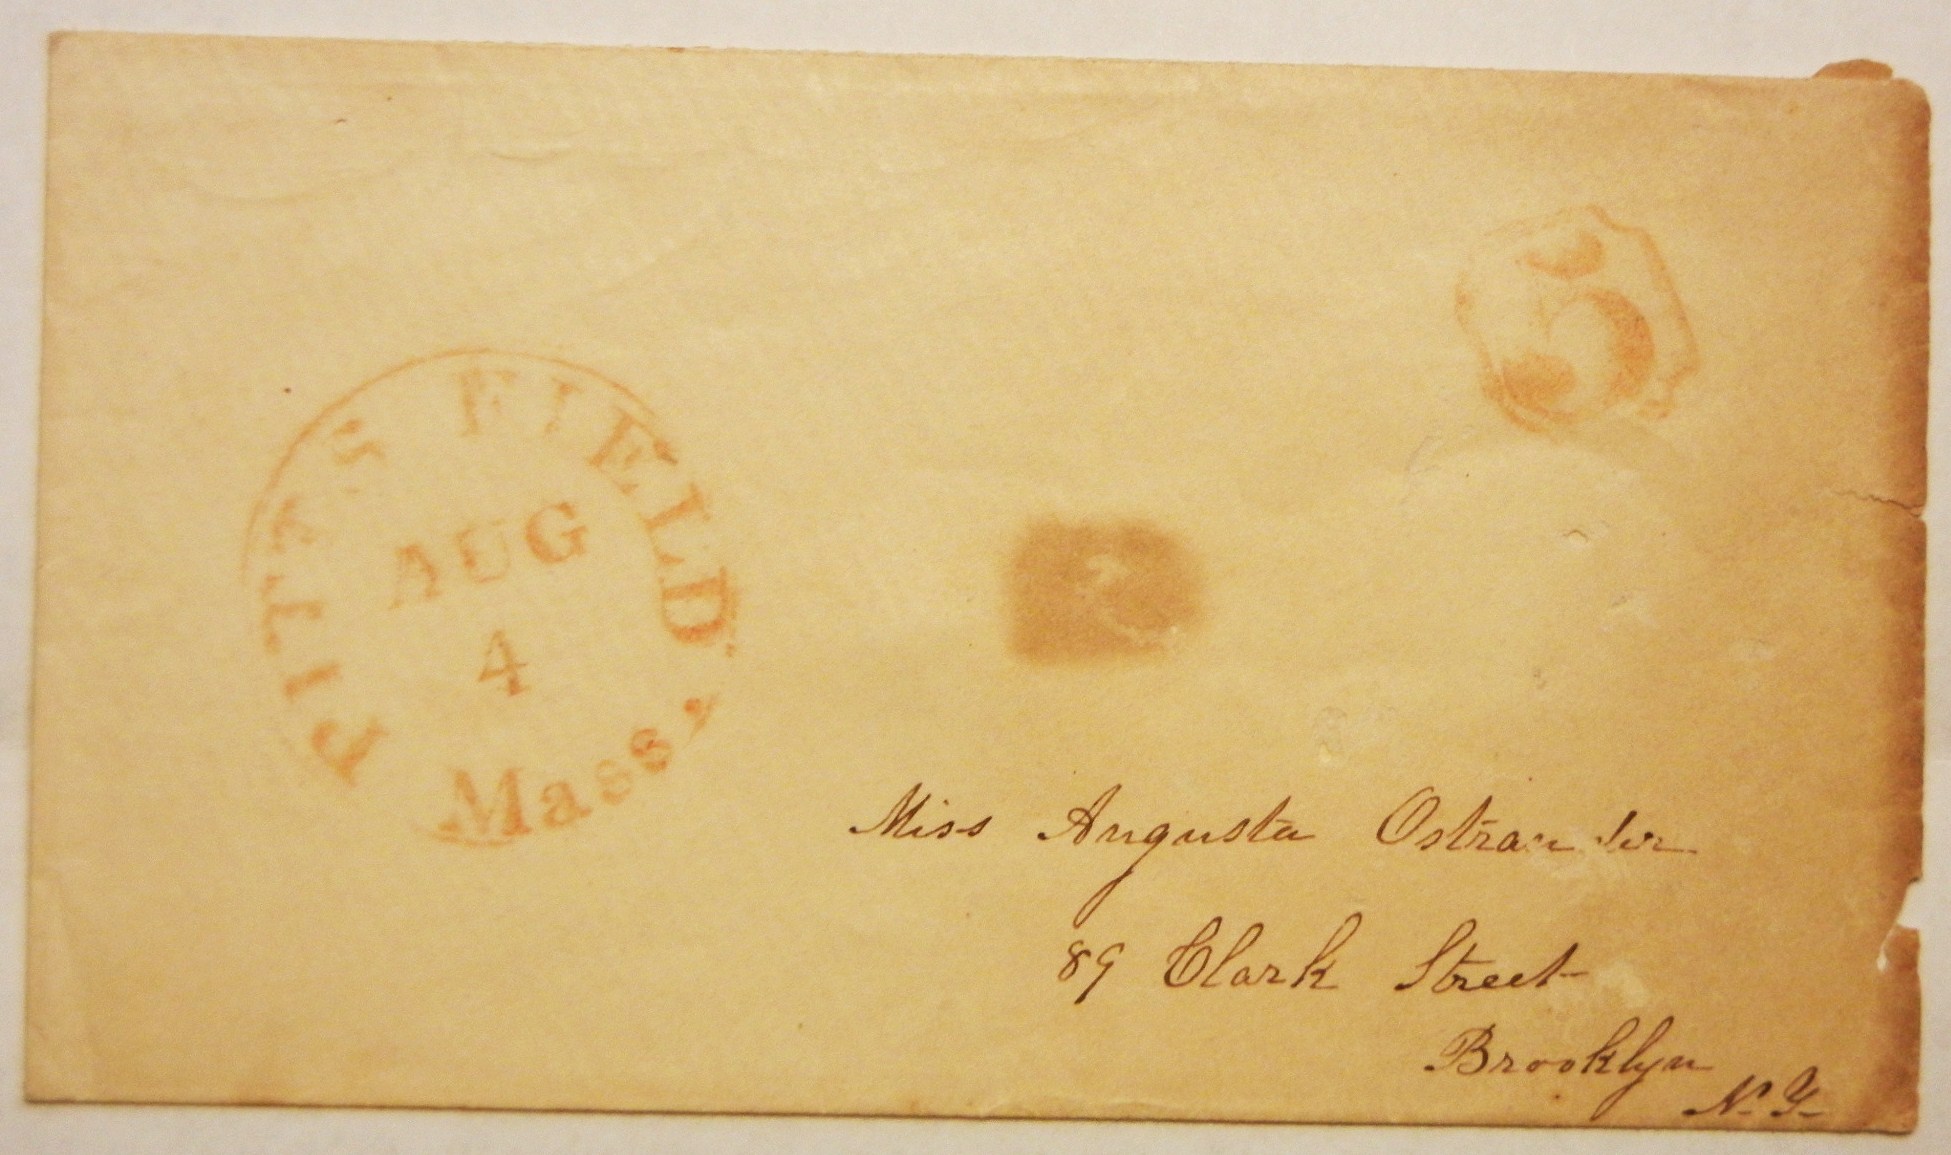 PITTSFIELD
AUG
4
Mass.
5
Miss Augusta Ostrander
89 Clark Street
Brooklyn
N.Y.